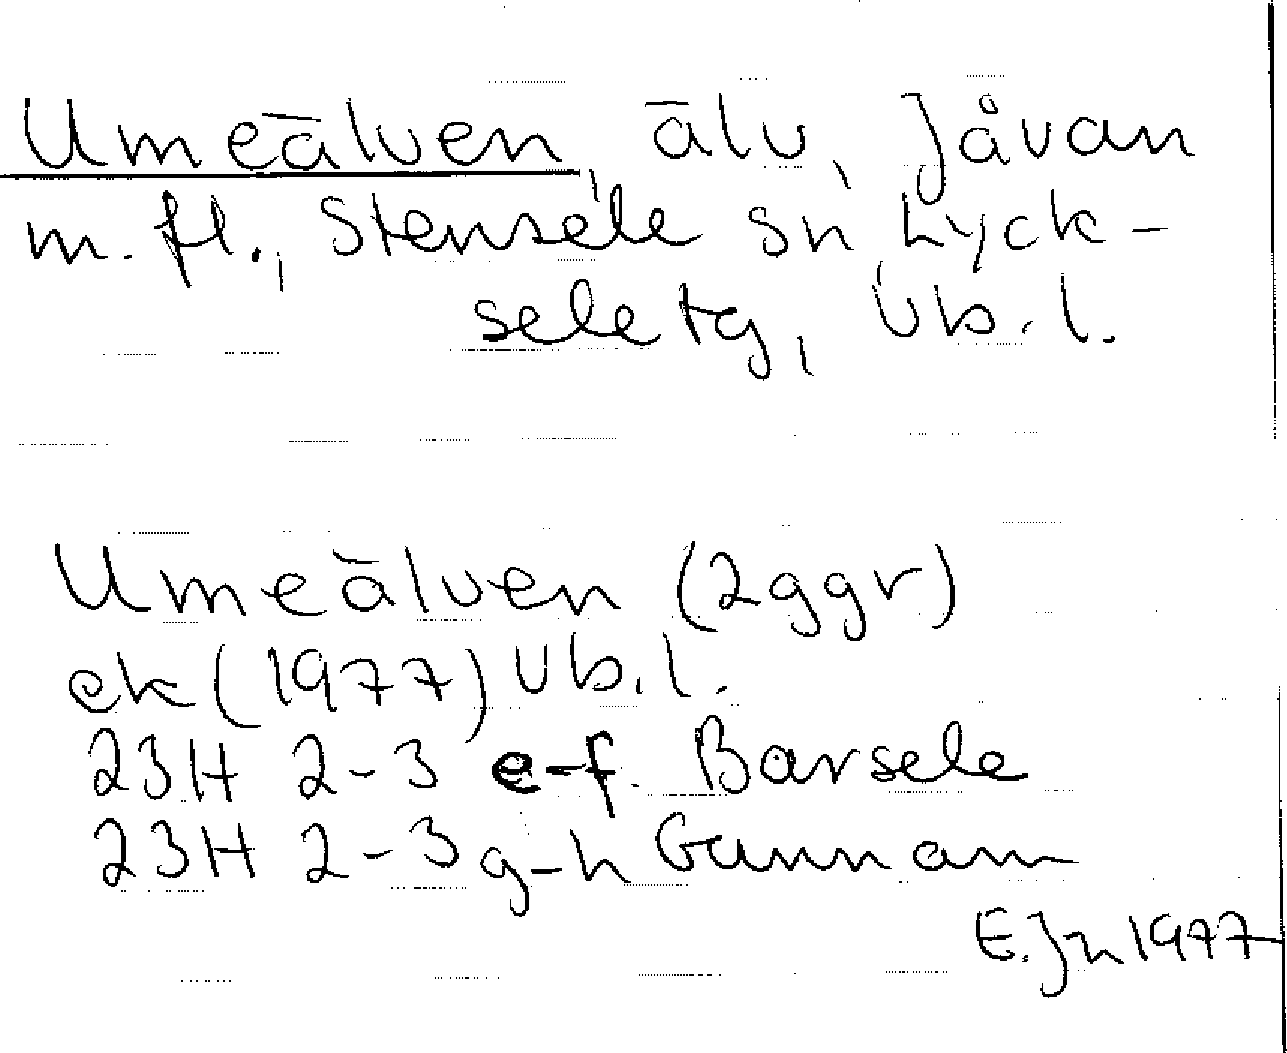 Umeälven, älv, Jåvan
m. fl., Stensele sn, Lyck-
sele tg, Vb. l.
Umeälven (2ggr)
ek (1977) Vb. l.
23H 2-3 e-f Barsele
23H 2-3 g-h Gunnarn
E. Jn 1977